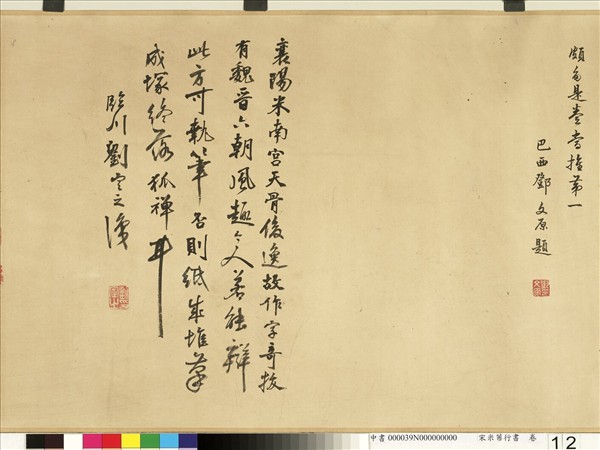 頗多是卷當推第一
巴西鄧文原題
襄陽米南宮天骨俊逸故作字奇拔
有魏晉六朝風趣今人若能辦
此方可執筆否則紙成堆筆
成塚終落狐禪耳
臨川劉定之識
中書 000039N000000000 宋米芾行書 卷
12